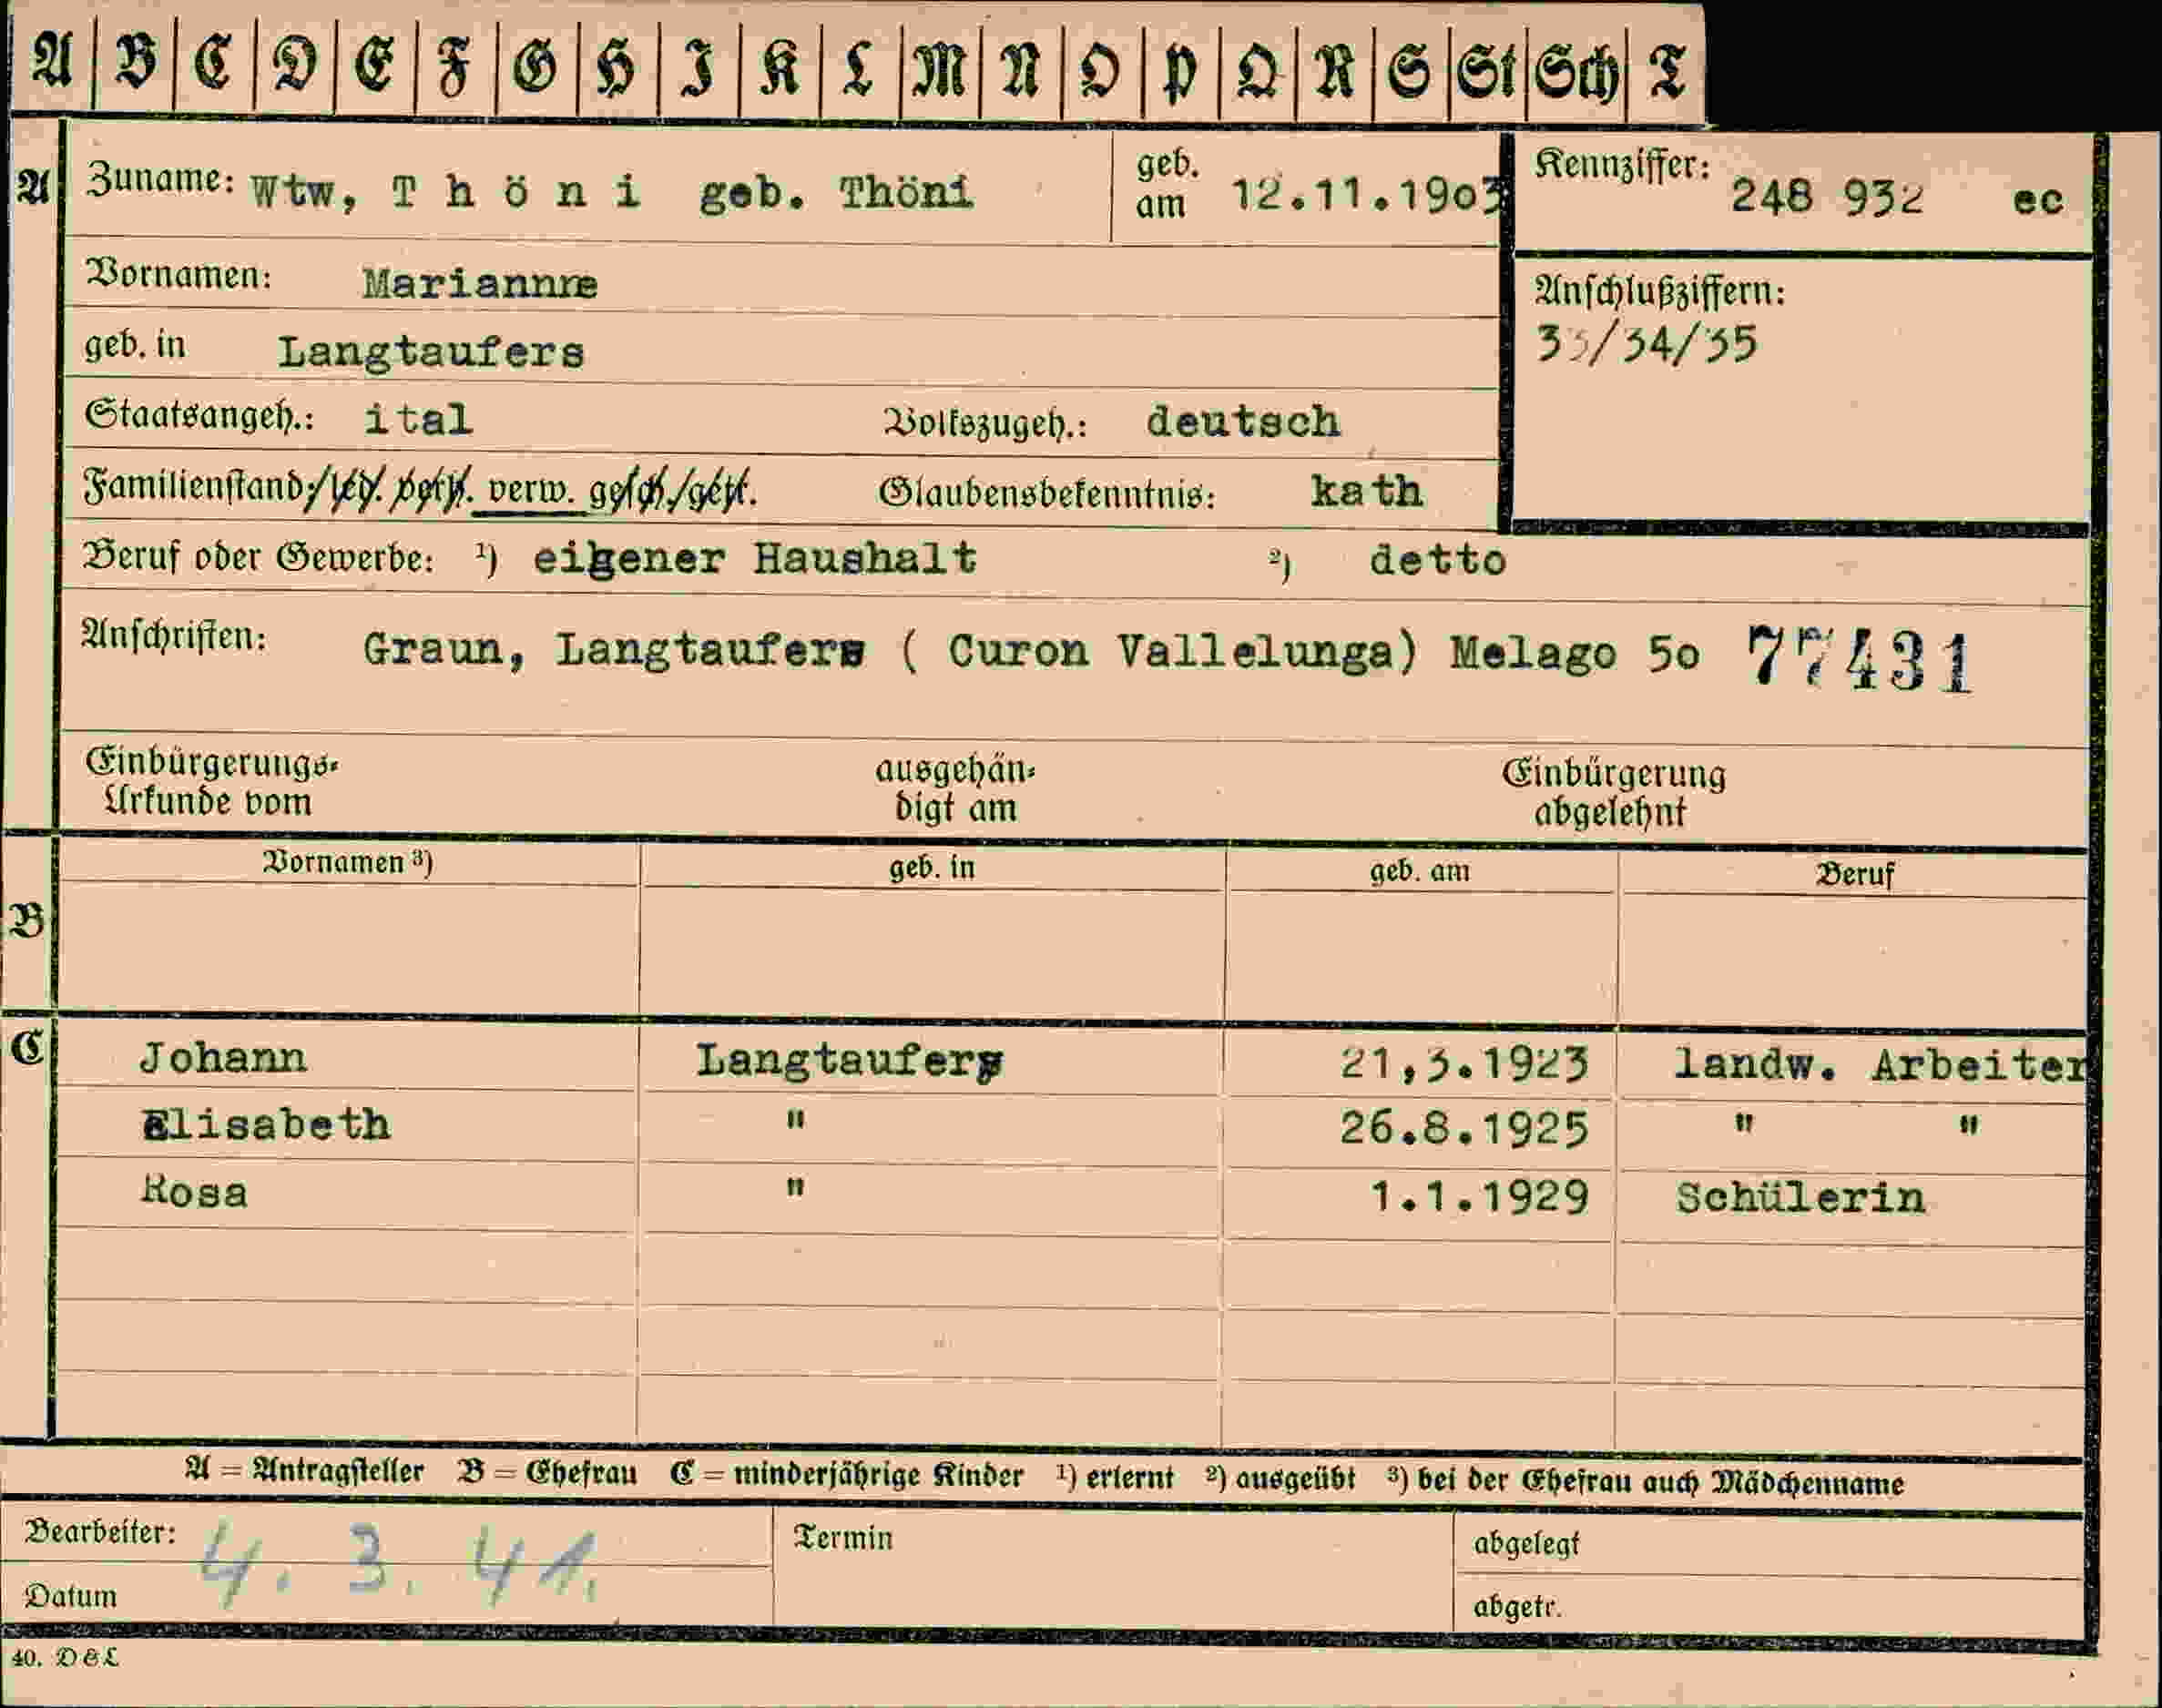 A B C D E F G H I K L M N O P Q R S St Sch T
A Zuname: Wtw, T h ö n i geb. Thöni geb. am 12.11.1903 Kennziffer: 248 932 ec
Vornamen: Mariannre
Anschlußziffern:
33/34/35
geb. in Langtaufers
Staatsangeh.: ital Volkszugeh.: deutsch
Familienstand: led. verh. verw. gesch./getr. Glaubensbekenntnis: kath
Beruf oder Gewerbe: ¹) eigener Haushalt ²) detto
Anschriften: Graun, Langtaufers ( Curon Vallelunga) Melago 5o 77431
Einbürgerungs- ausgehän- Einbürgerung
Urkunde vom digt am abgelehnt
Vornamen ³) geb. in geb. am Beruf
B
C Johann Langtaufers 21,3.1923 landw. Arbeiter
Elisabeth " 26.8.1925 " "
Rosa " 1.1.1929 Schülerin
A = Antragsteller B = Ehefrau C = minderjährige Kinder ¹) erlernt ²) ausgeübt ³) bei der Ehefrau auch Mädchenname
Bearbeiter: 4. 3. 41. Termin abgelegt
Datum abgetr.
40. D & L